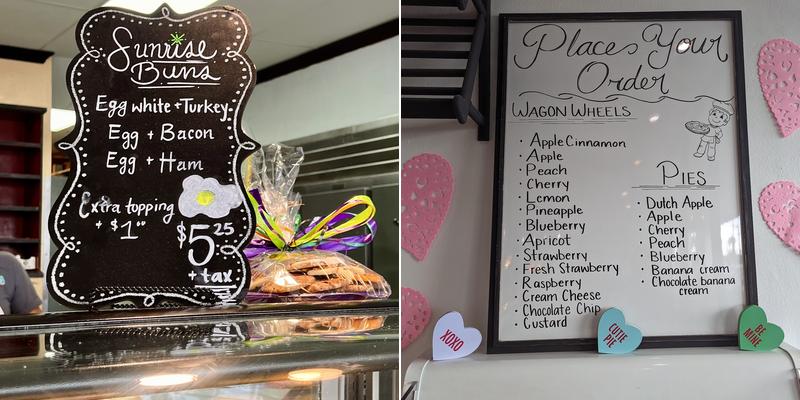 Sunrise
Buns
Egg white + Turkey
Egg + Bacon
Egg + Ham
Extra topping
+ $1.00
$5.25
+ tax
Places Your
Order
WAGON WHEELS
• Apple Cinnamon
• Apple
• Peach
• Cherry
• Lemon
• Pineapple
• Blueberry
• Apricot
• Strawberry
• Fresh Strawberry
• Raspberry
• Cream Cheese
• Chocolate Chip
• Custard
PIES
• Dutch Apple
• Apple
• Cherry
• Peach
• Blueberry
• Banana cream
• Chocolate banana
cream
XOXO
CUTIE
PIE
BE
MINE